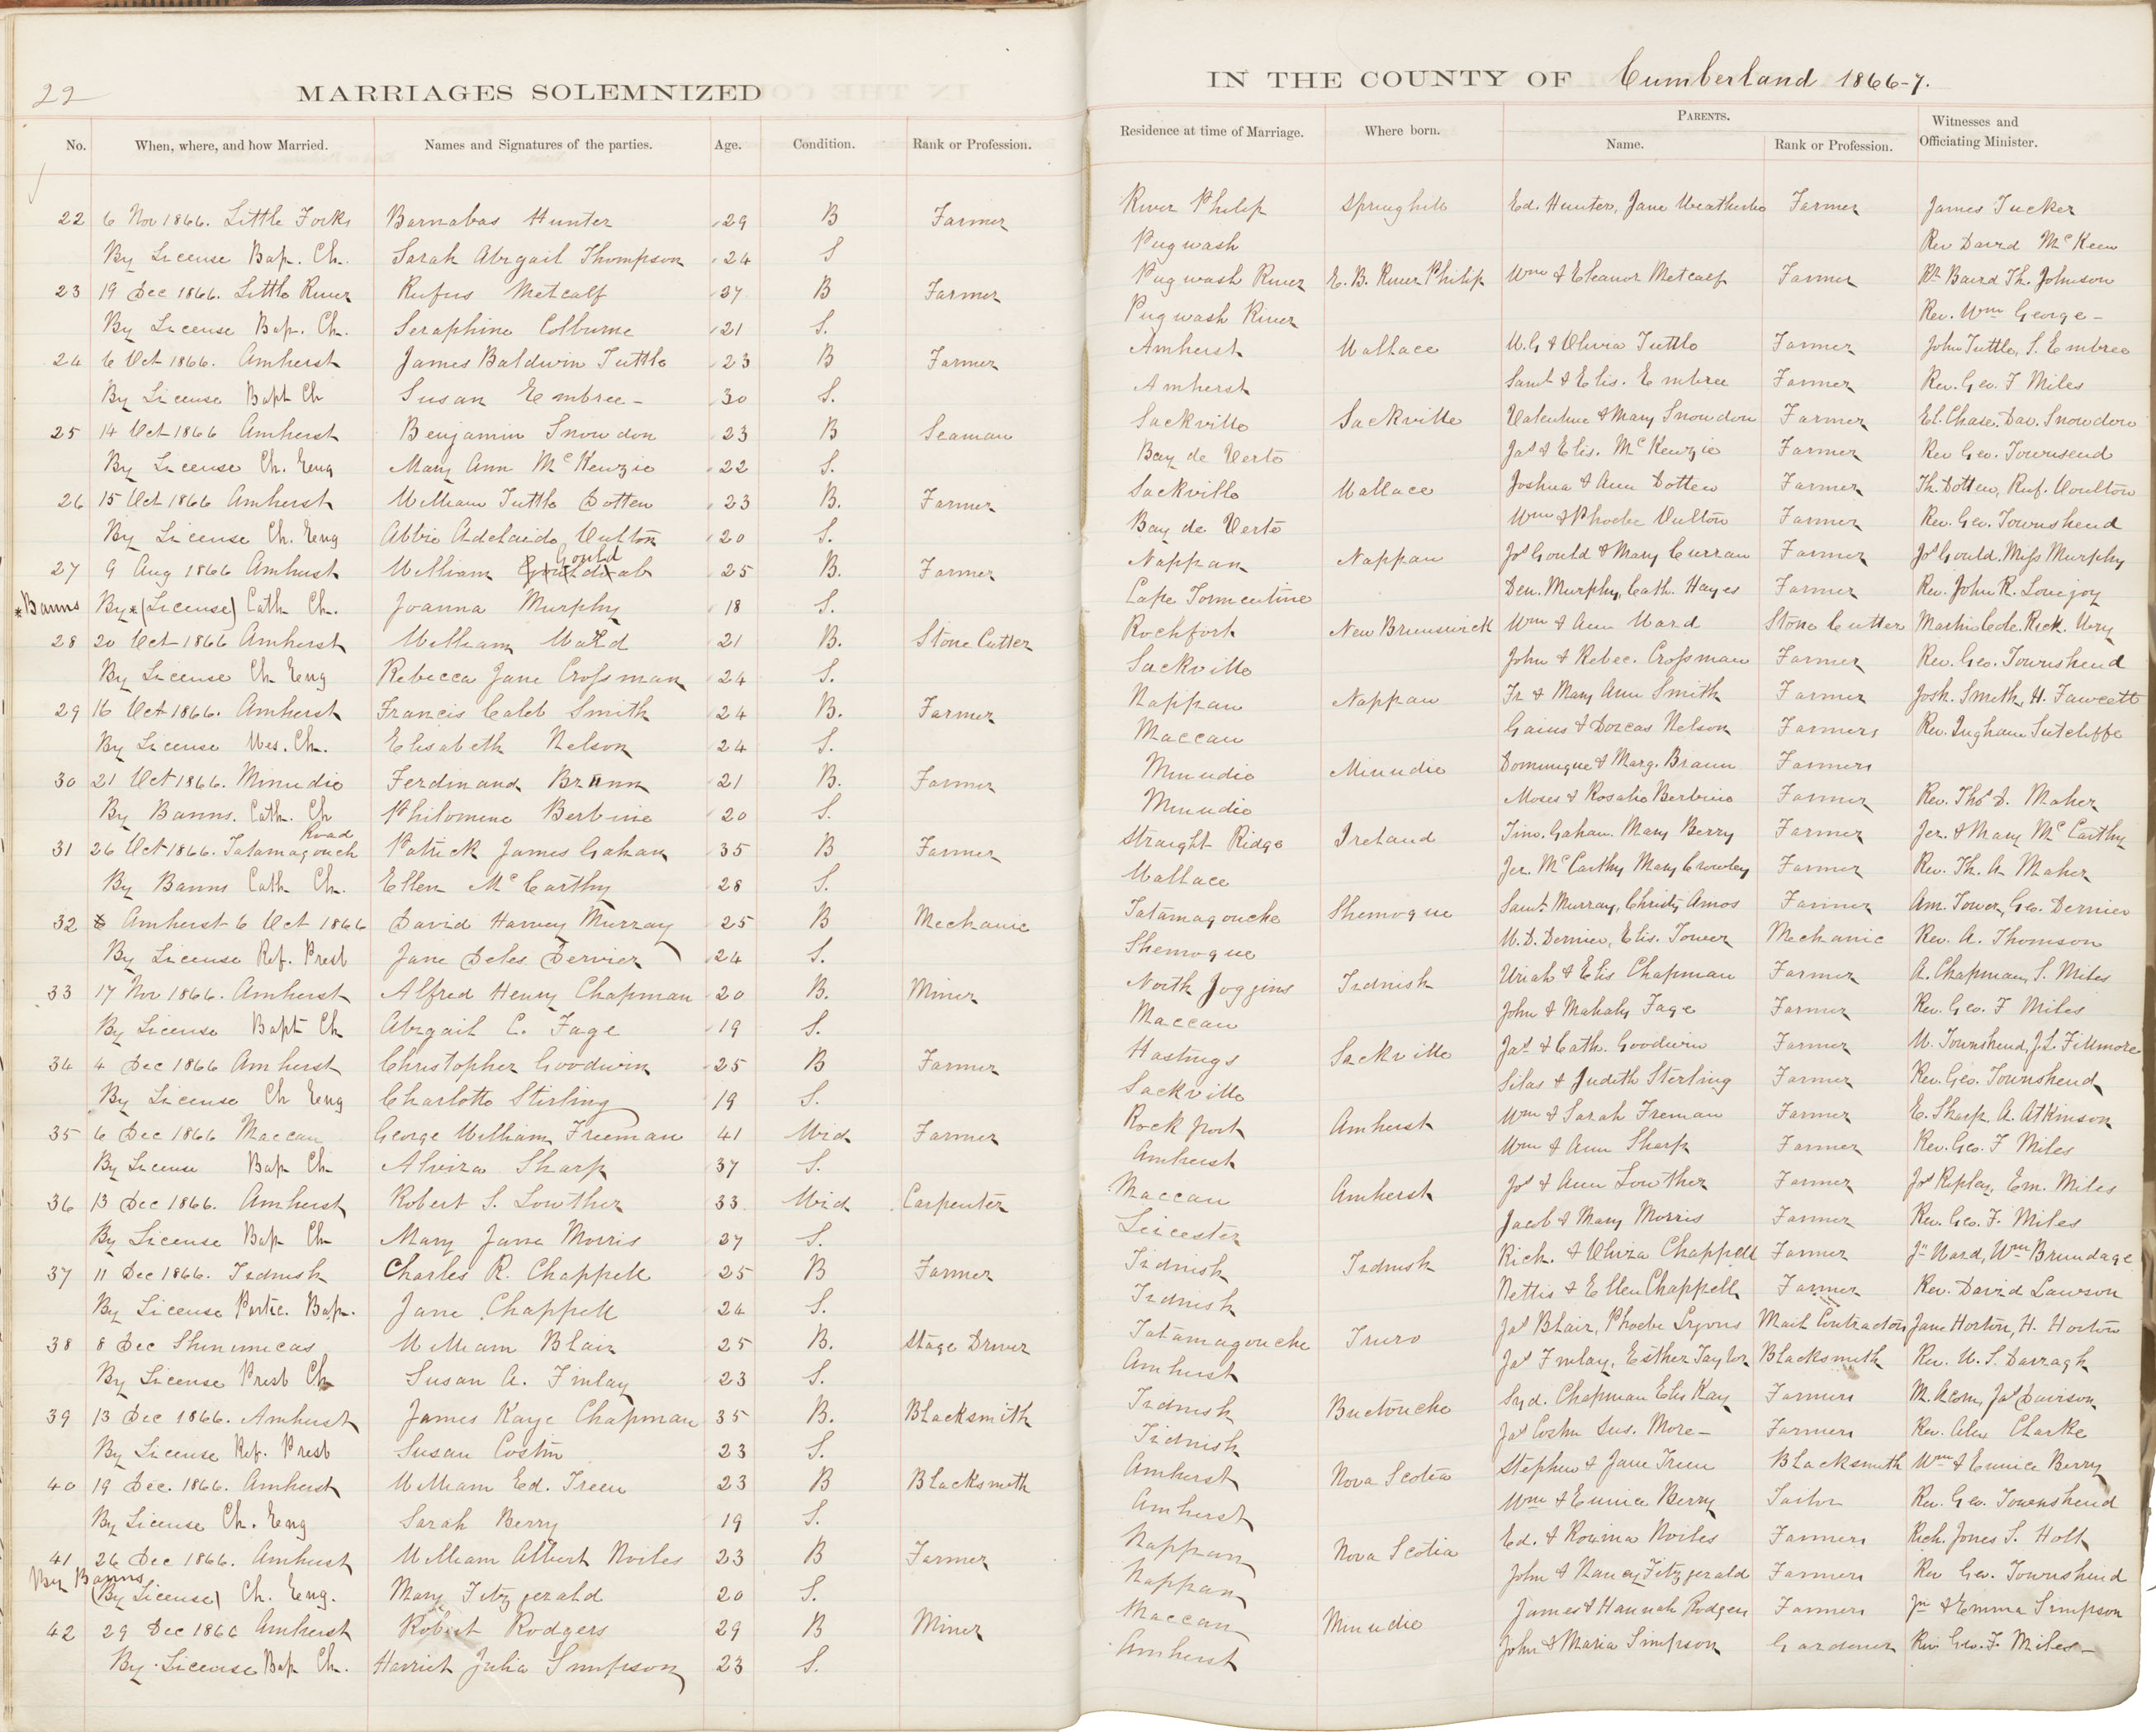 22
MARRIAGES SOLEMNIZED IN THE COUNTY OF Cumberland 1866-7.
No. When, where, and how Married. Names and Signatures of the parties. Age. Condition. Rank or Profession. Residence at time of Marriage. Where born. PARENTS. Name. Rank or Profession. Witnesses and Officiating Minister.
22 6 Nov 1866. Little Forks Barnabas Hunter 29 B Farmer River Philip Springhill Ed. Hunter, Jane Weatherbe Farmer James Tucker
By License Bap. Ch. Sarah Abigail Thompson 24 S Pugwash Rev David McKeen
23 19 Dec 1866. Little River Rufus Metcalf 37 B Farmer Pugwash River E. B. River Philip Wm & Eleanor Metcalf Farmer Rt Baird Th. Johnson
By License Bap. Ch. Seraphine Colburne 21 S. Pugwash River Rev. Wm George -
24 6 Oct 1866. Amherst James Baldwin Tuttle 23 B Farmer Amherst Wallace W. G & Olivia Tuttle Farmer John Tuttle, S. Embree
By License Bapt Ch Susan Embree - 30 S. Amherst Saml & Elis. Embree Farmer Rev. Geo. F Miles
25 14 Oct 1866 Amherst Benjamin Snowdon 23 B Seaman Sackville Sackville Valentine & Mary Snowdon Farmer El. Chase. Dav. Snowdon
By License Ch. Eng Mary Ann McKenzie 22 S. Bay de Verte Jas & Elis. McKenzie Farmer Rev Geo. Townsend
26 15 Oct 1866 Amherst William Tuttle Dotten 23 B. Farmer Sackville Wallace Joshua & Ann Dotten Farmer Th. Dotten, Ruf. Oulton
By License Ch. Eng Abbie Adelaide Oulton 20 S. Bay de Verte Wm & Phoebe Oulton Farmer Rev. Geo. Townshend
27 9 Aug 1866 Amherst William Gould 25 B. Farmer Nappan Nappan Jos Gould & Mary Curran Farmer Jos Gould. Miss Murphy
*Banns By *(License) Cath Ch. Joanna Murphy 18 S. Cape Tormentine Den. Murphy, Cath. Hayes Farmer Rev. John R. Lovejoy
28 20 Oct 1866 Amherst William Ward 21 B. Stone Cutter Rockfort New Brunswick Wm & Ann Ward Stone Cutter Martin Cole. Rich. Very
By License Ch Eng Rebecca Jane Crossman 24 S. Sackville John & Rebec. Crossman Farmer Rev. Geo. Townshend
29 16 Oct 1866. Amherst Francis Caleb Smith 24 B. Farmer Nappan Nappan Fr & Mary Ann Smith Farmer Josh. Smith, H. Fawcett
By License Wes. Ch. Elisabeth Nelson 24 S. Maccan Gaius & Dorcas Nelson Farmers Rev. Ingham Sutcliffe
30 21 Oct 1866. Minudie Ferdinand Brann 21 B. Farmer Minudie Minudie Dominique & Marg. Braun Farmers
By Banns. Cath. Ch Philomene Berbine 20 S. Minudie Moses & Rosalie Berbine Farmer Rev. Thos D. Maher
31 26 Oct 1866. Tatamagouch Road Patrick James Gahan 35 B Farmer Straight Ridge Ireland Timo. Gahan. Mary Berry Farmer Jer. & Mary McCarthy
By Banns Cath Ch. Ellen McCarthy 28 S. Wallace Jer. McCarthy Mary Crowley Farmer Rev. Th. A Maher
32 Amherst 6 Oct 1866 David Harvey Murray 25 B Mechanic Tatamagouche Shemogue Saml. Murray, Christy Amos Farmer Am. Tower, Geo. Dernier
By License Ref. Presb Jane Deles Dervier 24 S. Shemogue W. D. Dernier, Elis. Tower Mechanic Rev. A. Thomson
33 17 Nov 1866. Amherst Alfred Henry Chapman 20 B. Miner North Joggins Tidnish Uriah & Elis Chapman Farmer A. Chapman, S. Miles
By License Bapt Ch Abigail C. Fage 19 S. Maccan John & Mahaly Fage Farmer Rev. Geo. F Miles
34 4 Dec 1866 Amherst Christopher Goodwin 25 B Farmer Hastings Sackville Jas & Cath. Goodwin Farmer W. Townshend, J. L. Fillmore
By License Ch Eng Charlotte Stirling 19 S. Sackville Silas & Judith Sterling Farmer Rev. Geo. Townshend
35 6 Dec 1866 Maccan George William Freeman 41 Wid Farmer Rock port Amherst Wm & Sarah Freman Farmer E. Sharp. A. Atkinson
By License Bap Ch Alvira Sharp 37 S. Amherst Wm & Ann Sharp Farmer Rev. Geo. F Miles
36 13 Dec 1866. Amherst Robert S. Lowther 33 Wid Carpenter Maccan Amherst Jos & Ann Lowther Farmer Jos Ripley, Em. Miles
By License Bap Ch Mary Jane Morris 27 S. Leicester Jacob & Mary Morris Farmer Rev. Geo. F. Miles
37 11 Dec 1866. Tidnish Charles R. Chappell 25 B Farmer Tidnish Tidnish Rich. & Oliva Chappell Farmer Jn Ward, Wm Brundage
By License Partic. Bap. Jane Chappell 24 S. Tidnish Nettis & Ellen Chappell Farmer Rev. David Lawson
38 8 Dec Shinimicas William Blair 25 B. Stage Driver Tatamagouche Truro Jas Blair, Phoebe Lyons Mail Contractors Jane Horton, H. Horton
By License Presb Ch Susan A. Finlay 23 S. Amherst Jas Finlay, Esther Taylor Blacksmith Rev. W. S. Darragh
39 13 Dec 1866. Amherst James Kaye Chapman 35 B. Blacksmith Tidnish Buctouche Syd. Chapman Elis Kay Farmers M. Acorn, Jas Davison
By License Ref. Presb Susan Costin 23 S. Tidnish Jas Costin Sus. More - Farmers Rev. Alex Clarke
40 19 Dec. 1866. Amherst William Ed. Treen 23 B Blacksmith Amherst Nova Scotia Stephen & Jane Treen Blacksmith Wm & Eunice Berry
By License Ch. Eng Sarah Berry 19 S. Amherst Wm & Eunice Berry Tailor Rev. Geo. Townshend
41 26 Dec 1866. Amherst William Albert Noiles 23 B Farmer Nappan Nova Scotia Ed. & Rowina Noiles Farmers Rich. Jones S. Holt
By Banns (By License) Ch. Eng. Mary Fitzgerald 20 S. Nappan John & Nancy Fitzgerald Farmers Rev Geo. Townshend
42 29 Dec 1866 Amherst Robert Rodgers 29 B Miner Maccan Minudie James & Hannah Rodgers Farmers Jn & Emma Simpson
By License Bap Ch. Harriet Julia Simpson 23 S. Amherst John & Maria Simpson Gardener Rev Geo. F. Miles -